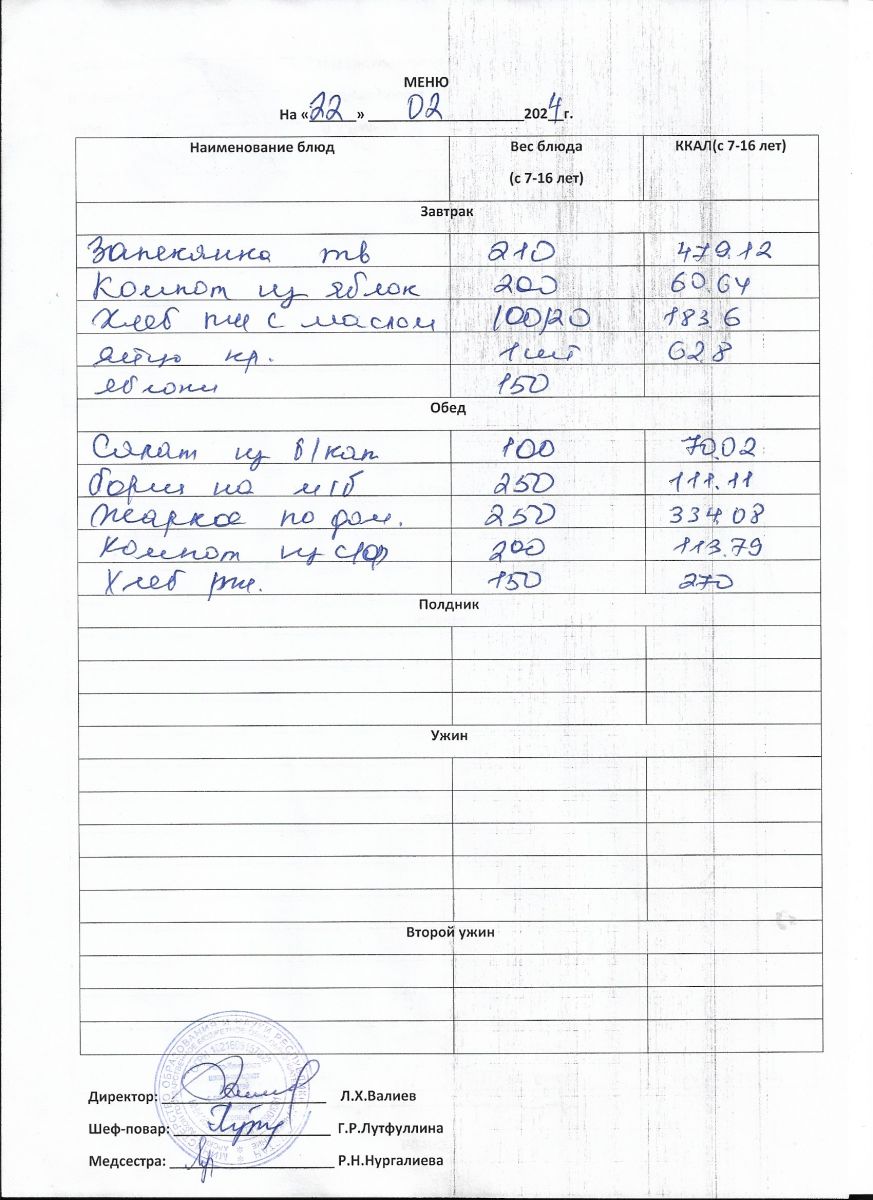 МЕНЮ
На «22» 02 2024 г.
Наименование блюд Вес блюда (с 7-16 лет) ККАЛ(с 7-16 лет)
Завтрак
Запеканка тв 210 479.12
Компот из яблок 200 60.64
Хлеб пш с маслом 100/20 183.6
яйцо кр. 1 шт 62.8
яблоки 150
Обед
Салат из б/кап 100 70.02
борщ на м/б 250 111.11
Жаркое по дом. 250 334.08
Компот из с/ф 200 113.79
Хлеб рж. 150 270
Полдник
Ужин
Второй ужин
Директор: Л.Х.Валиев
Шеф-повар: Г.Р.Лутфуллина
Медсестра: Р.Н.Нургалиева